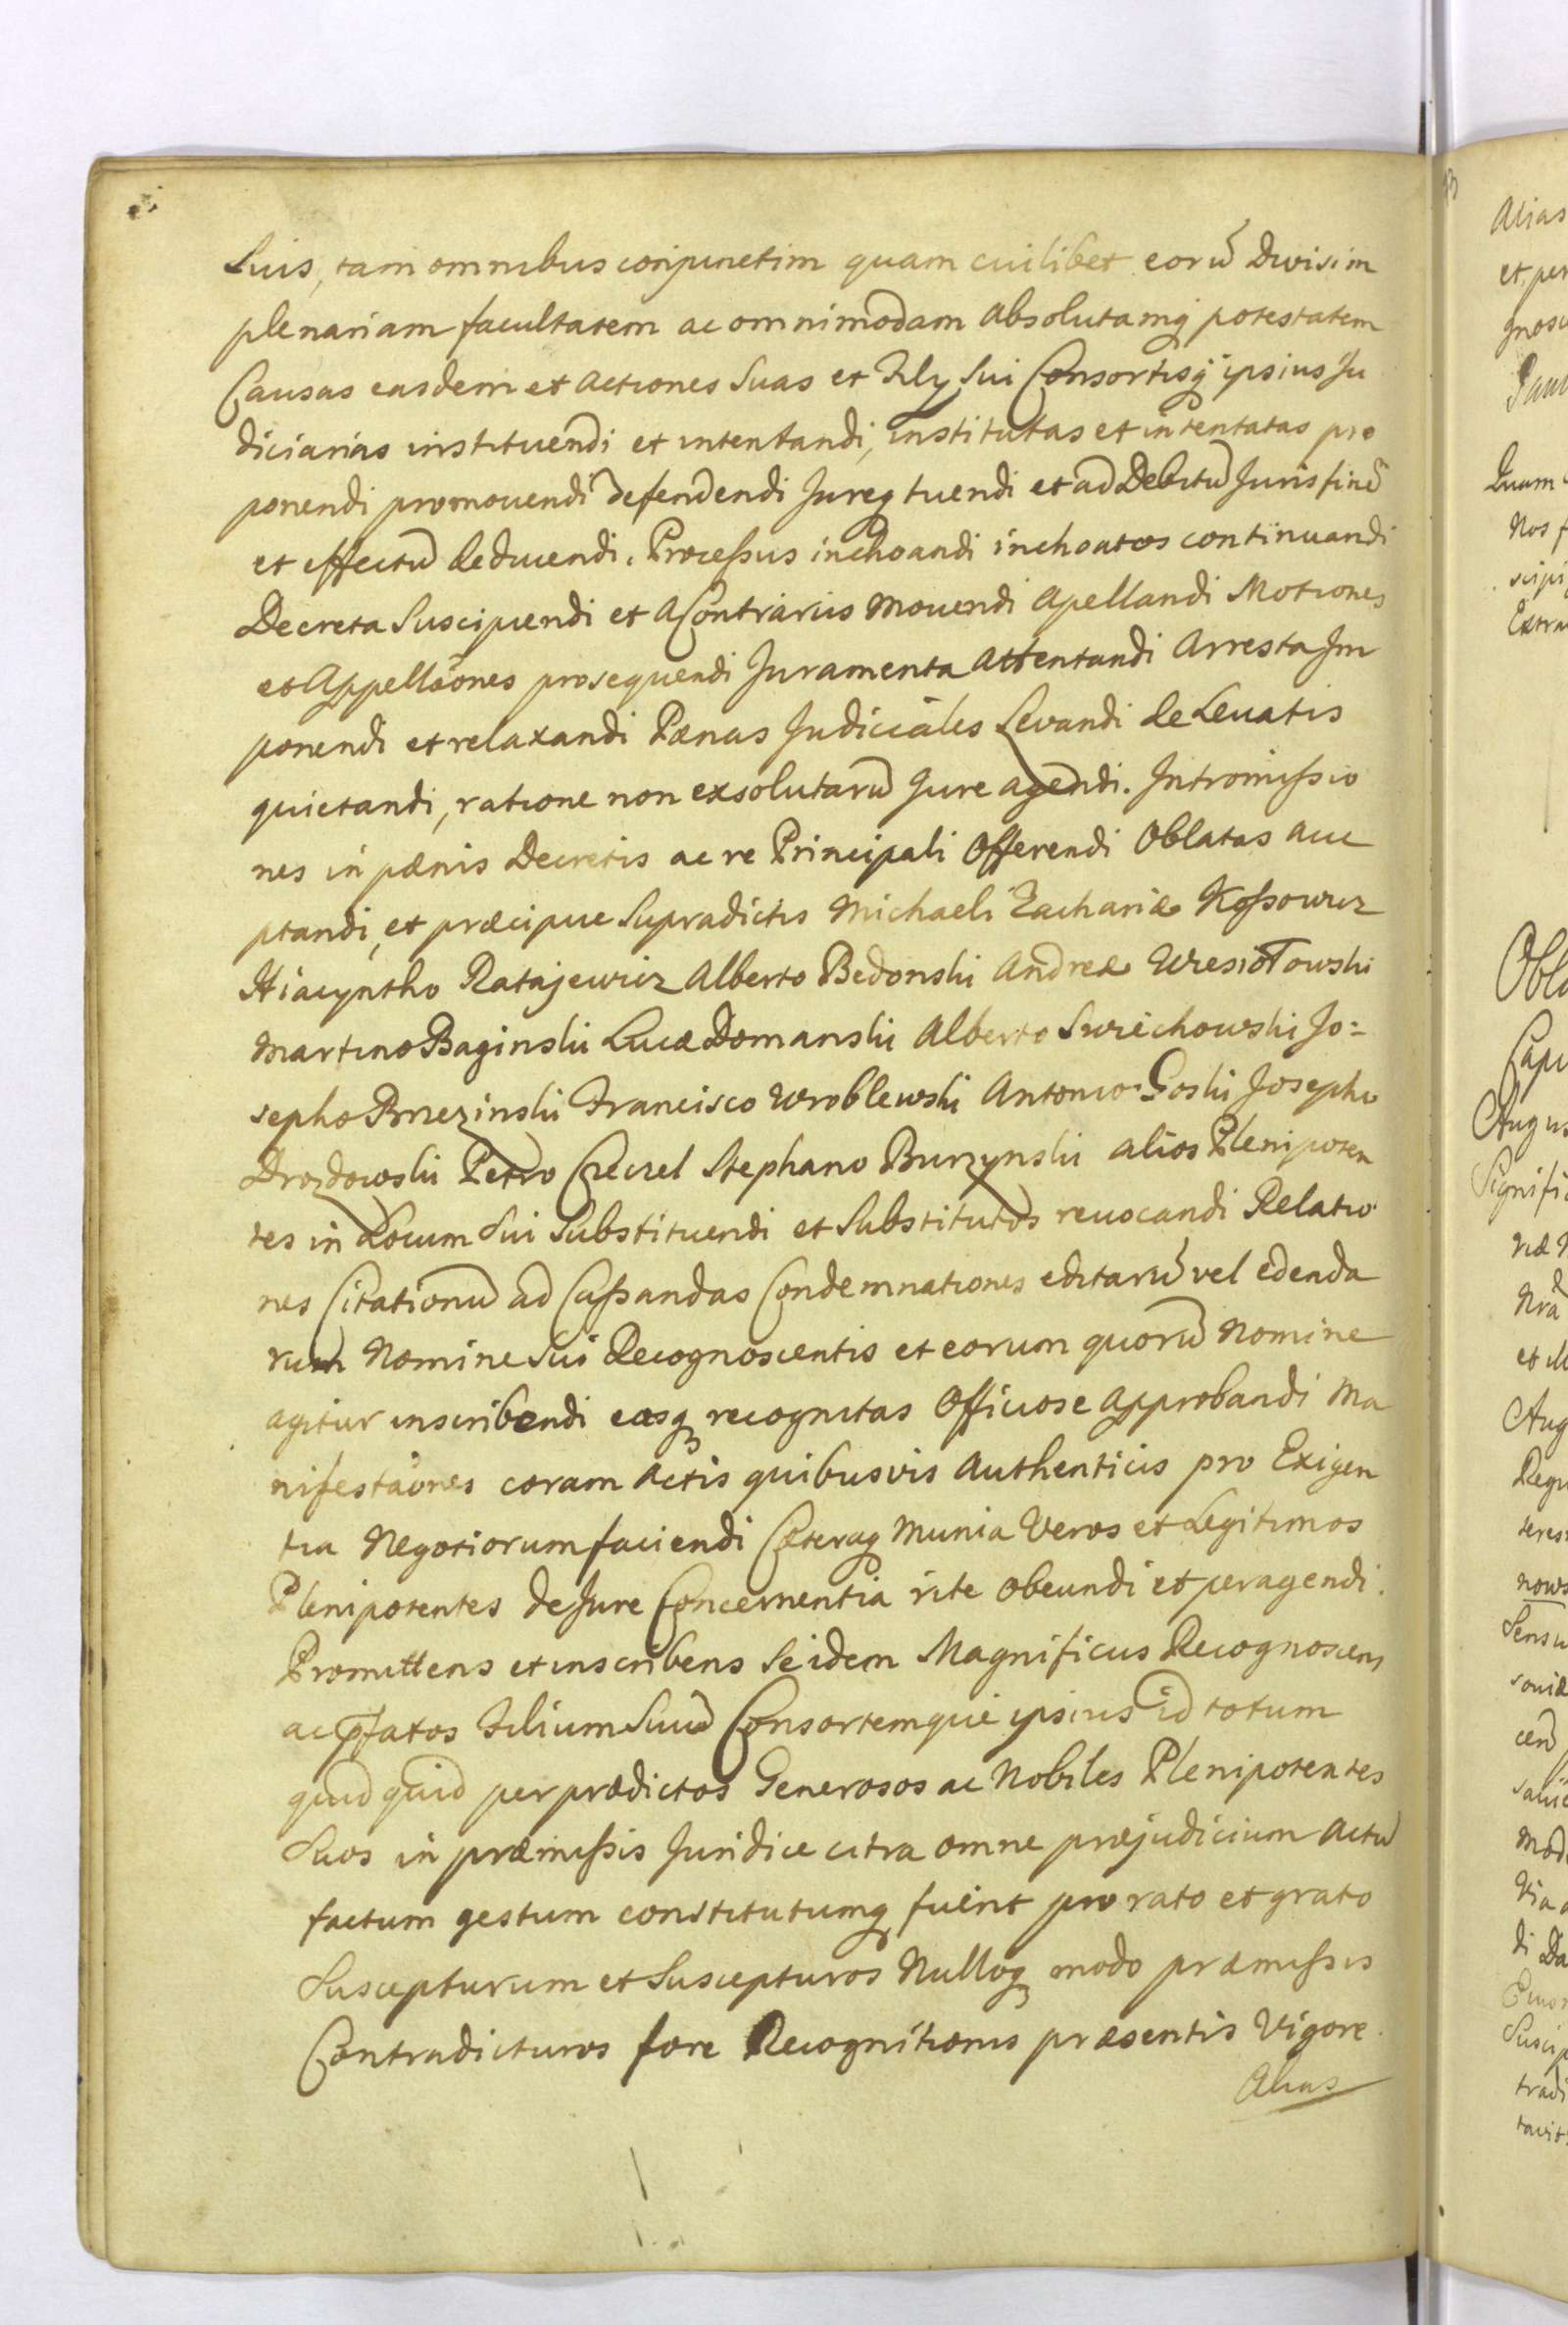 Suis, tam omnibus conjunctim quam cuilibet eorũ Divisim
plenariam facultatem ac omnimodam absolutamq potestatem
Causas easdem et actiones Suas et Filÿ Sui Consortisq ipsius Ju
diciarias instituendi et intentandi, institutas et intentatas pro
ponendi promouendi defendendi Jureq tuendi et ad Debitũ Juris finẽ
et effectũ deducendi. Processus inchoandi inchoatos continuandi
Decreta Suscipiendi et a Contrariis Mouendi Apellandi Motiones
et Appellaõnes prosequendi Juramenta Attentandi Arresta Im
ponendi et relaxandi Pænas Judiciales Levandi de Levatis
quietandi, ratione non exsolutarũ Jure agendi. Intromissio
nes in pænis Decretis ac re Principali Offerendi Oblatas acce
ptandi, et præcipue Supradictis Michaeli Zachariæ Kossowicz
Hiacyntho Ratajewicz Alberto Bedonski Andreæ Wresiotowski
Martino Baginski Lucæ Domanski Alberto Swiechowski Jo=
sepho Brzezinski Francisco Wroblewski Antonio Goski Josepho
Drozdowski Petro Czeczel Stephano Burzynski alios Plenipoten
tes in Locum Sui Substituendi et Substitutos reuocandi Relatio
nes Citationũ ad Cassandas Condemnationes editarũ vel edenda
rum Nomine Sui Recognoscentis et eorum quorũ Nomine
agitur inscribendi easq recognitas Officiose approbandi Ma
nifestaõnes coram Actis quibusvis Authenticis pro Exigen
tia Negotiorum faciendi Cæteraq Munia Veros et Legitimos
Plenipotentes de Jure Concernentia rite obeundi et peragendi.
Promittens et inscribens Se idem Magnificus Recognoscens
ac pfatos Filium Suũ Consortemque ipsius id totum
quidquid per prædictos Generosos ac Nobiles Plenipotentes
Suos in præmissis Juridice citra omne præjudicium actũ
factum gestum constitutumq fuerit pro rato et grato
Suscepturum et Suscepturos Nulloq modo præmissis
Contradicturos fore Recognitionis præsentis Vigore.
Alias